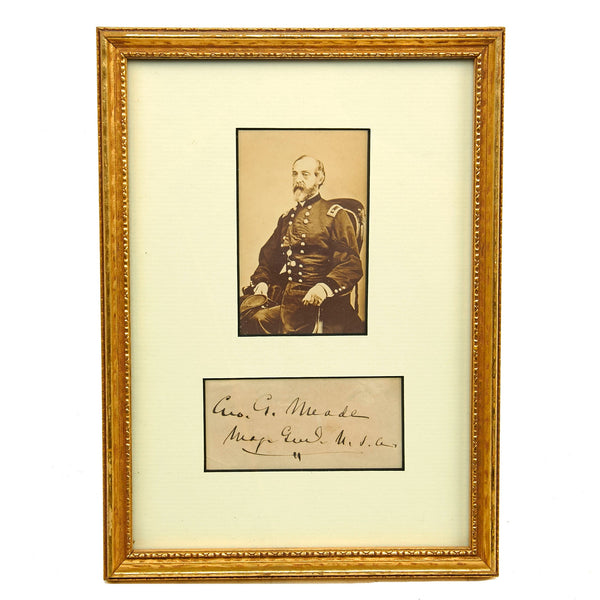 Geo. G. Meade
Maj. Genl. U. S. A.